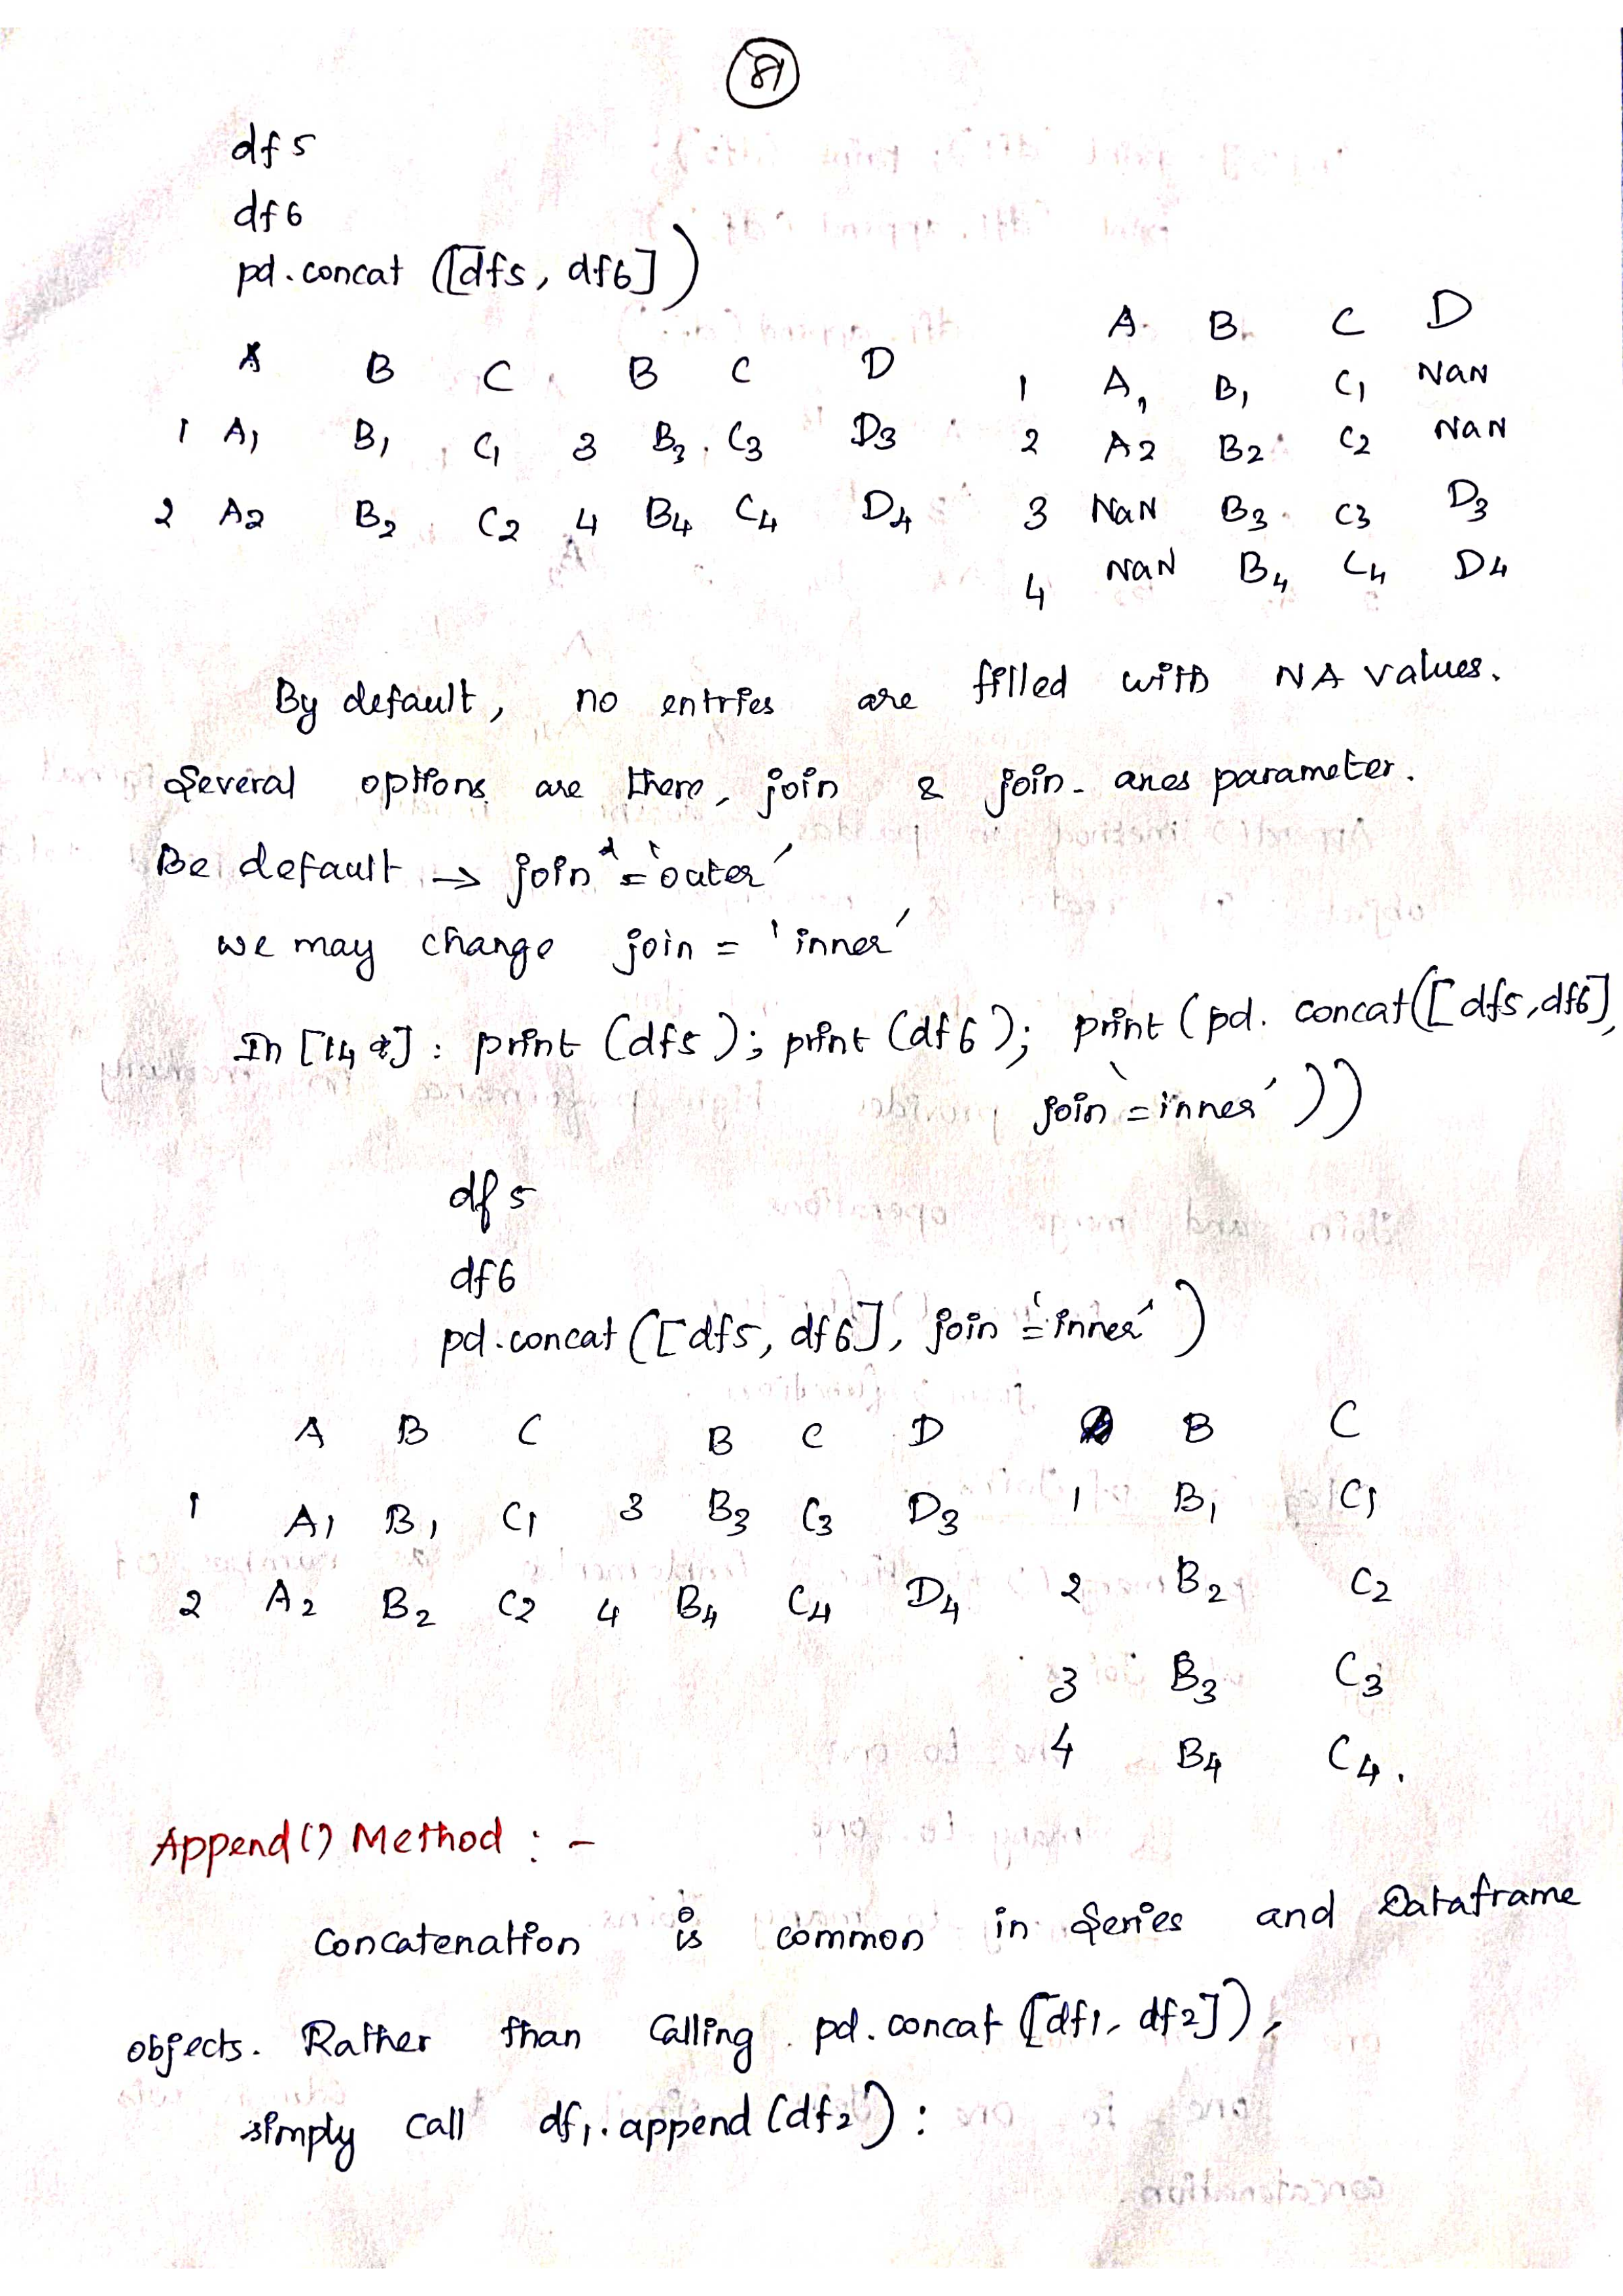 81
df5
df6
pd.concat ([df5, df6])
A B C B C D A B C D
1 A1 B1 C1 3 B3 C3 D3 1 A1 B1 C1 NaN
2 A2 B2 C2 4 B4 C4 D4 2 A2 B2 C2 NaN
3 NaN B3 C3 D3
4 NaN B4 C4 D4
By default, no entries are filled with NA values.
Several options are there, join & join_axes parameter.
Be default → join = 'outer'
we may change join = 'inner'
In [14]: print (df5); print (df6); print (pd. concat([df5, df6],
join = 'inner'))
df5
df6
pd.concat ([df5, df6], join = 'inner')
A B C B C D B C
1 A1 B1 C1 3 B3 C3 D3 1 B1 C1
2 A2 B2 C2 4 B4 C4 D4 2 B2 C2
3 B3 C3
4 B4 C4.
Append() Method : -
Concatenation is common in Series and Dataframe
objects. Rather than calling pd. concat ([df1, df2]),
simply call df1. append (df2) :